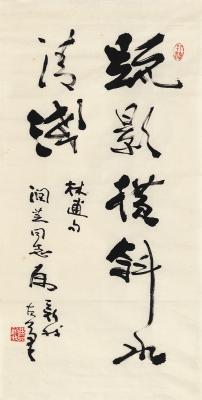 疏影横斜水
清浅
林逋句
润芝同志属